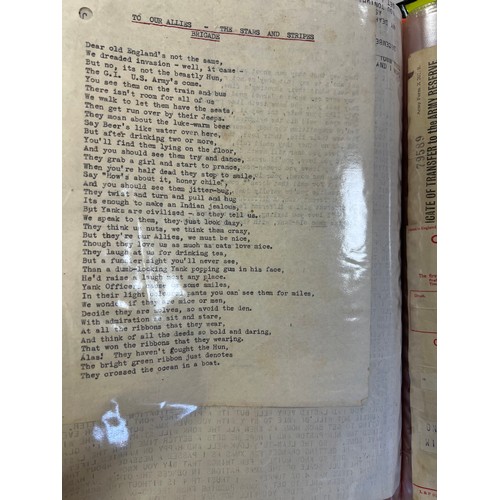 TO OUR ALLIES - THE STARS AND STRIPES
BRIGADE
Dear old England's not the same,
We dreaded invasion - well, it came -
But no, its not the beastly Hun,
The G.I. U.S. Army's come.
You see them on the train and bus
There isn't room for all of us
We walk to let them have the seats,
Then get run over by their Jeeps.
They moan about the luke-warm beer
Say Beer's like water over here,
But after drinking two or more,
You'll find them lying on the floor,
And you should see them try and dance,
They grab a girl and start to prance,
When you're half dead they stop to smile,
Say "How's about it, honey chile",
And you should see them jitter-bug,
They twist and turn and pull and hug
Its enough to make an Indian jealous,
But Yanks are civilised - so they tell us.
We speak to them, they just look dazy,
They think us nuts, we think them crazy,
But they're our Allies, we must be nice,
Though they like us as much as cats love mice.
They laugh at us for drinking tea,
But a funnier sight you'll never see,
Than a dumb-looking Yank popping gum in his face,
He'd raise a laugh at any place.
Yank Officers some smiles,
In their light pants you can see them for miles,
We wonder if they're mice or men,
Decide they are wolves, so avoid the den.
With admiration we sit and stare,
At all the ribbons that they wear,
And think of all the deeds so bold and daring,
That won the ribbons that they wearing.
Alas! They haven't fought the Hun,
The bright green ribbon just denotes
They crossed the ocean in a boat.
DATE OF TRANSFER to the ARMY RESERVE